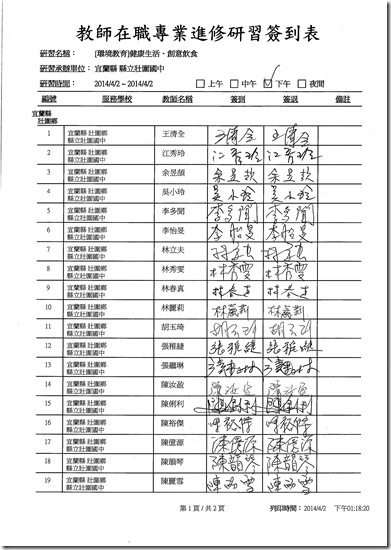 教師在職專業進修研習簽到表
研習名稱： [環境教育]健康生活、創意飲食
研習承辦單位： 宜蘭縣 縣立壯圍國中
研習時間： 2014/4/2 ~ 2014/4/2 □上午 □中午 ☑下午 □夜間
編號 服務學校 教師名稱 簽到 簽退 備註
宜蘭縣
壯圍鄉
1 宜蘭縣 壯圍鄉 王清全
縣立壯圍國中
2 宜蘭縣 壯圍鄉 江秀玲 江秀玲 江秀玲
縣立壯圍國中
3 宜蘭縣 壯圍鄉 余昱頡
縣立壯圍國中
4 宜蘭縣 壯圍鄉 吳小玲 吳小玲 吳小玲
縣立壯圍國中
5 宜蘭縣 壯圍鄉 李多聞 李多聞 李多聞
縣立壯圍國中
6 宜蘭縣 壯圍鄉 李怡旻 李怡旻 李怡旻
縣立壯圍國中
7 宜蘭縣 壯圍鄉 林立夫
縣立壯圍國中
8 宜蘭縣 壯圍鄉 林秀雯 林秀雯 林秀雯
縣立壯圍國中
9 宜蘭縣 壯圍鄉 林春真
縣立壯圍國中
10 宜蘭縣 壯圍鄉 林麗莉 林麗莉 林麗莉
縣立壯圍國中
11 宜蘭縣 壯圍鄉 胡玉琦
縣立壯圍國中
12 宜蘭縣 壯圍鄉 張稚緁 張稚緁 張稚緁
縣立壯圍國中
13 宜蘭縣 壯圍鄉 張繼琳
縣立壯圍國中
14 宜蘭縣 壯圍鄉 陳汝盈
縣立壯圍國中
15 宜蘭縣 壯圍鄉 陳俐利
縣立壯圍國中
16 宜蘭縣 壯圍鄉 陳裕傑 陳裕傑 陳裕傑
縣立壯圍國中
17 宜蘭縣 壯圍鄉 陳億源 陳億源 陳億源
縣立壯圍國中
18 宜蘭縣 壯圍鄉 陳韻琴 陳韻琴 陳韻琴
縣立壯圍國中
19 宜蘭縣 壯圍鄉 陳麗雪
縣立壯圍國中
第 1 頁 / 共 2 頁 列印時間：2014/4/2 下午 01:18:20